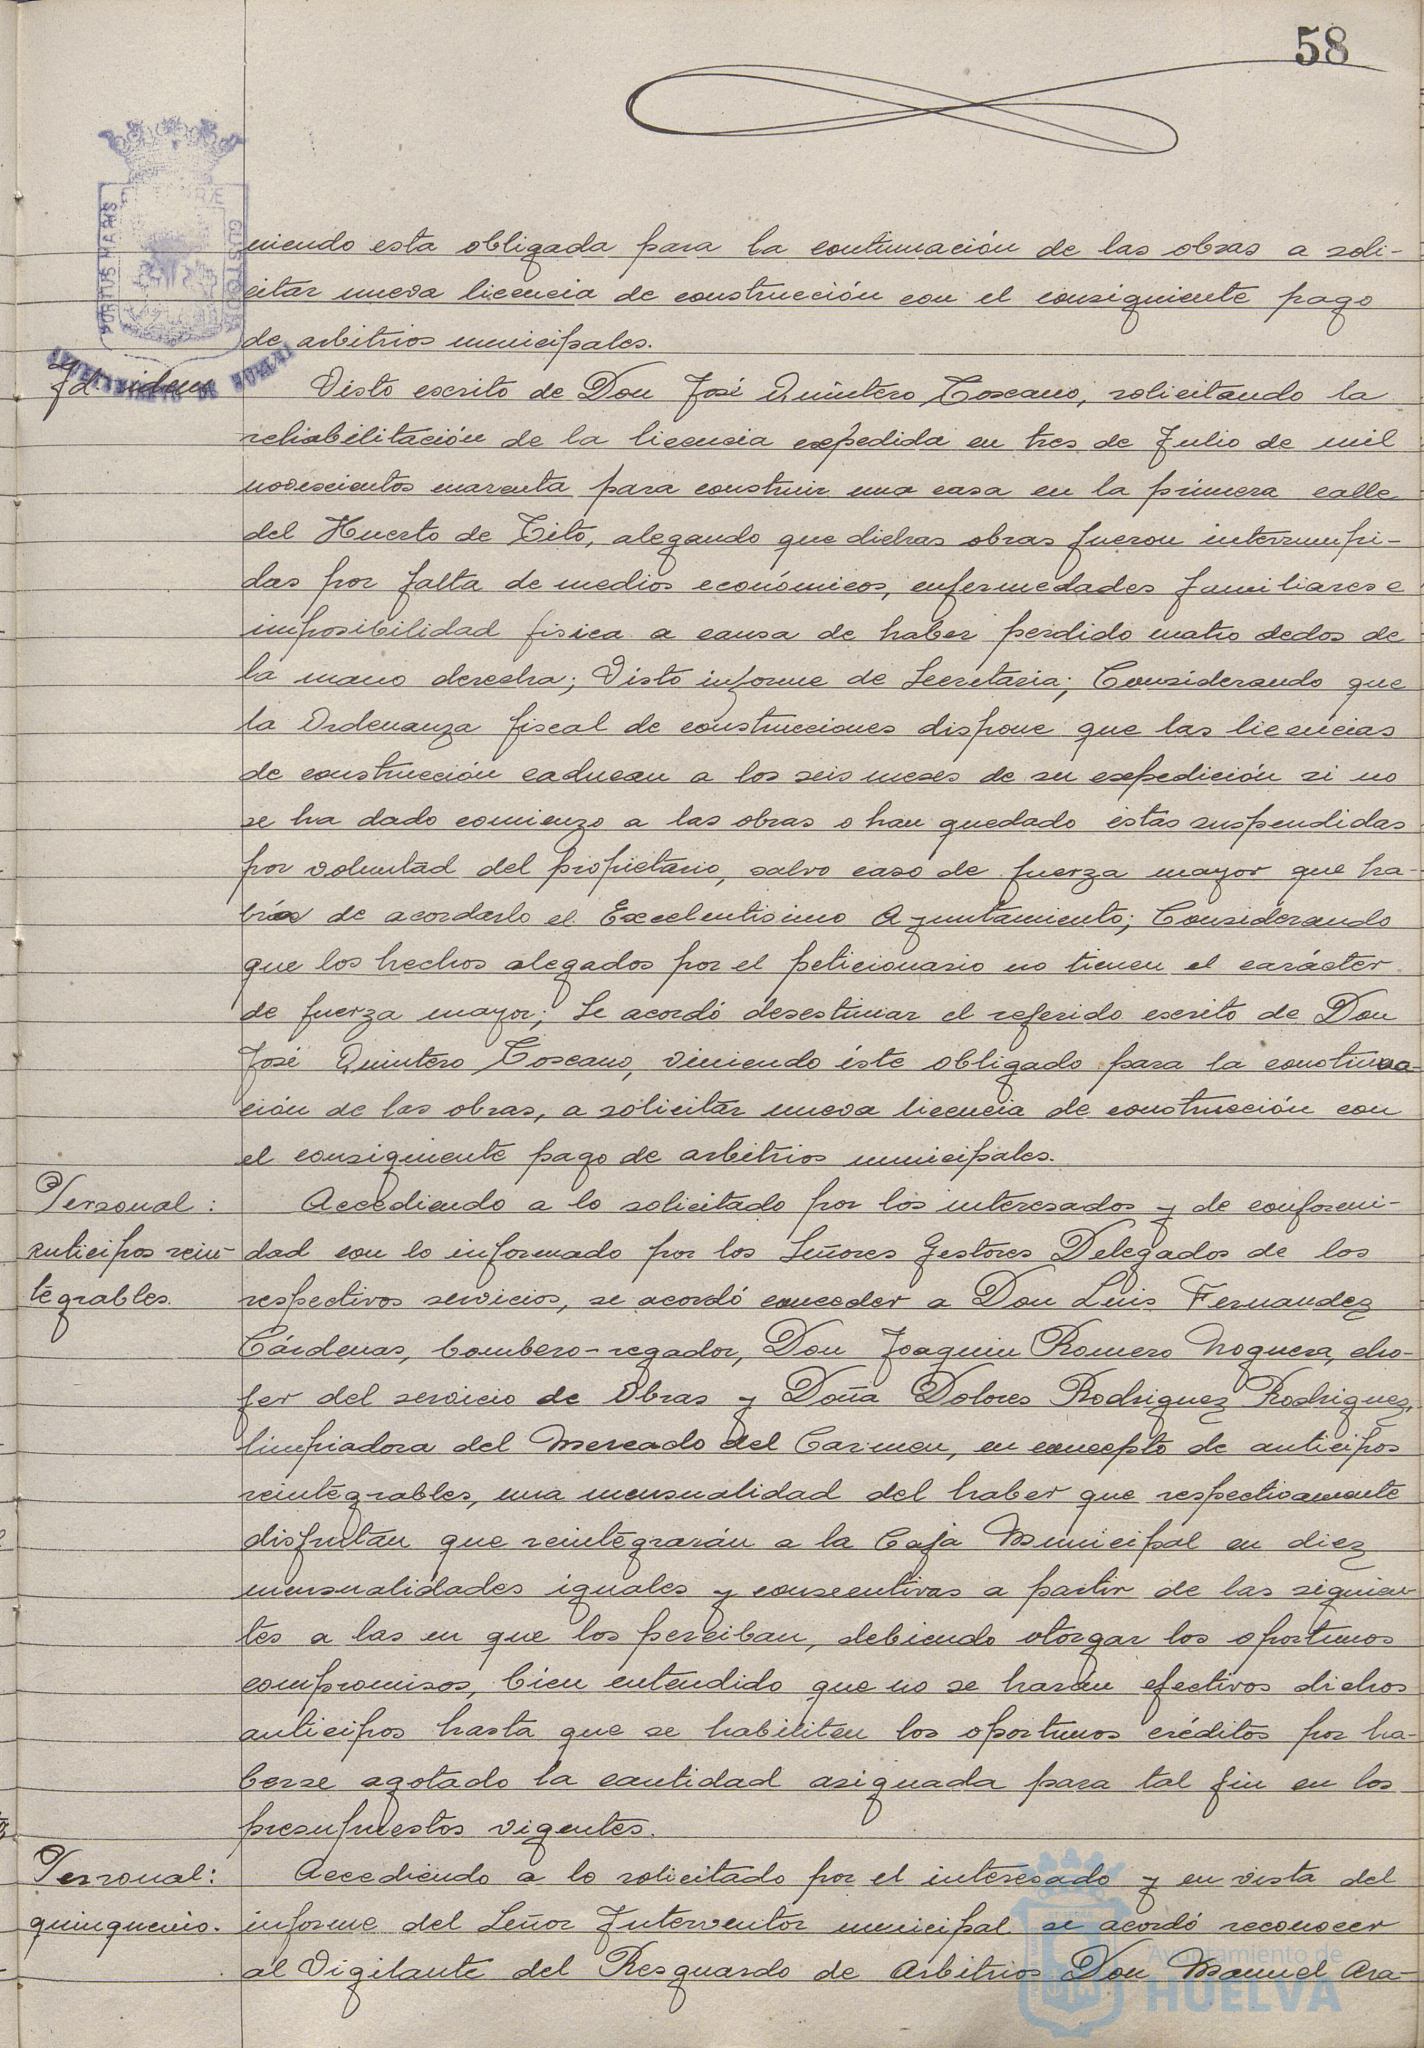 58
PORTUS MARIS
CUSTODIA
AYUNTAMIENTO DE HUELVA
niendo esta obligada para la continuación de las obras a soli-
citar nueva licencia de construcción con el consiguiente pago
de arbitrios municipales.
Id. idem
Visto escrito de Don José Quintero Toscano, solicitando la
rehabilitación de la licencia expedida en tres de Julio de mil
novescientos cuarenta para construir una casa en la primera calle
del Huerto de Tito, alegando que dichas obras fueron interrumpi-
das por falta de medios económicos, enfermedades familiares e
imposibilidad fisica a causa de haber perdido cuatro dedos de
la mano derecha; Visto informe de Secretaria; Considerando que
la Ordenanza fiscal de construcciones dispone que las licencias
de construcción caducan a los seis meses de su expedición si no
se ha dado comienzo a las obras o han quedado éstas suspendidas
por voluntad del propietario, salvo caso de fuerza mayor que ha-
brá de acordarlo el Excelentisimo Ayuntamiento; Considerando
que los hechos alegados por el peticionario no tienen el carácter
de fuerza mayor; Se acordó desestimar el referido escrito de Don
José Quintero Toscano, viniendo éste obligado para la continua-
ción de las obras, a solicitar nueva licencia de construcción con
el consiguiente pago de arbitrios municipales.
Personal:
anticipos rein-
tegrables.
Accediendo a lo solicitado por los interesados y de conformi-
dad con lo informado por los Señores Gestores Delegados de los
respectivos servicios, se acordó conceder a Don Luis Fernandez
Cárdenas, bombero-regador, Don Joaquin Romero Noguera, cho-
fer del servicio de Obras y Doña Dolores Rodriguez Rodriguez,
limpiadora del Mercado del Carmen, en concepto de anticipos
reintegrables, una mensualidad del haber que respectivamente
disfrutan que reintegrarán a la Caja Municipal en diez
mensualidades iguales y consecutivas a partir de las siguien-
tes a las en que los perciban, debiendo otorgar los oportunos
compromisos, bien entendido que no se harán efectivos dichos
anticipos hasta que se habiliten los oportunos créditos por ha-
berse agotado la cantidad asignada para tal fin en los
presupuestos vigentes.
Personal:
quinquenio.
Accediendo a lo solicitado por el interesado y en vista del
informe del Señor Interventor municipal se acordó reconocer
al Vigilante del Resguardo de Arbitrios Don Manuel Ara-
Ayuntamiento de
HUELVA